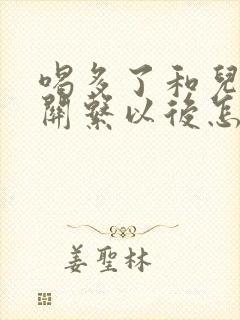 喝多了和兒
關繫以後怎
姜聖林